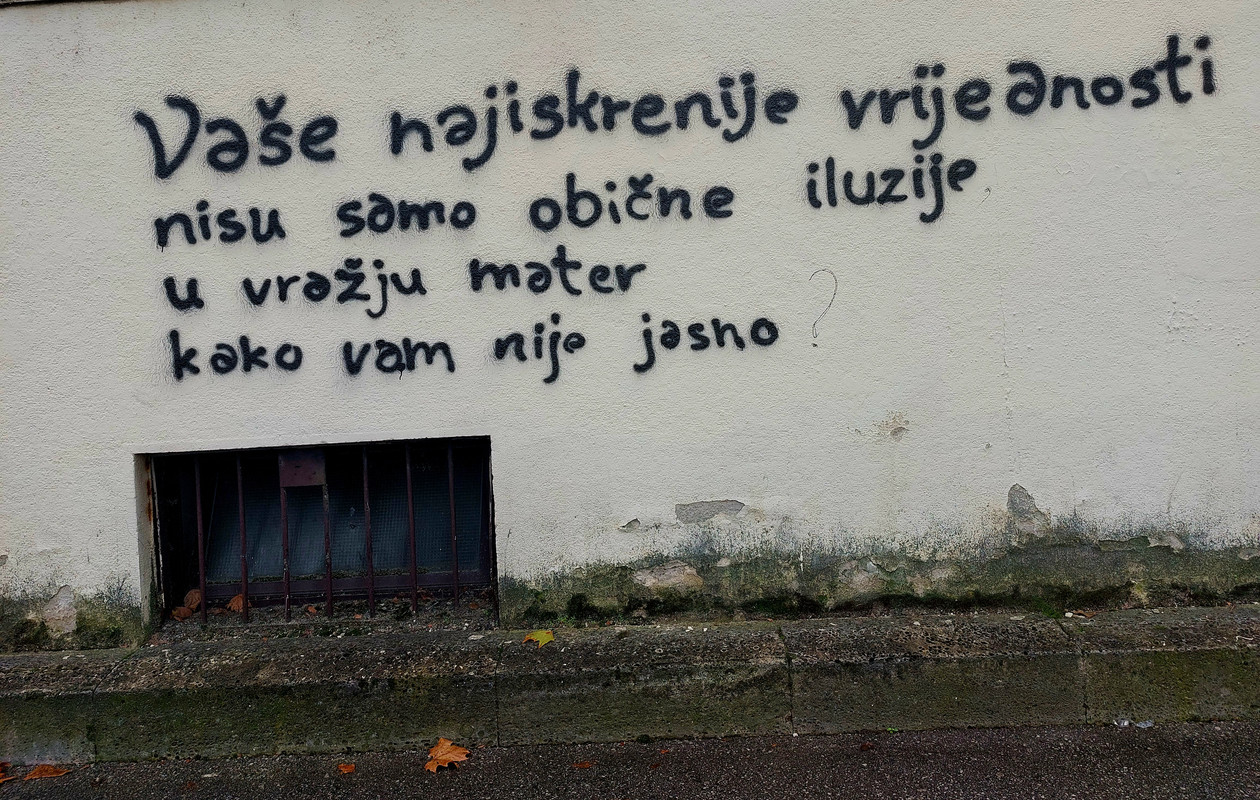 Vaše najiskrenije vrijednosti
nisu samo obične iluzije
u vražju mater
kako vam nije jasno ?